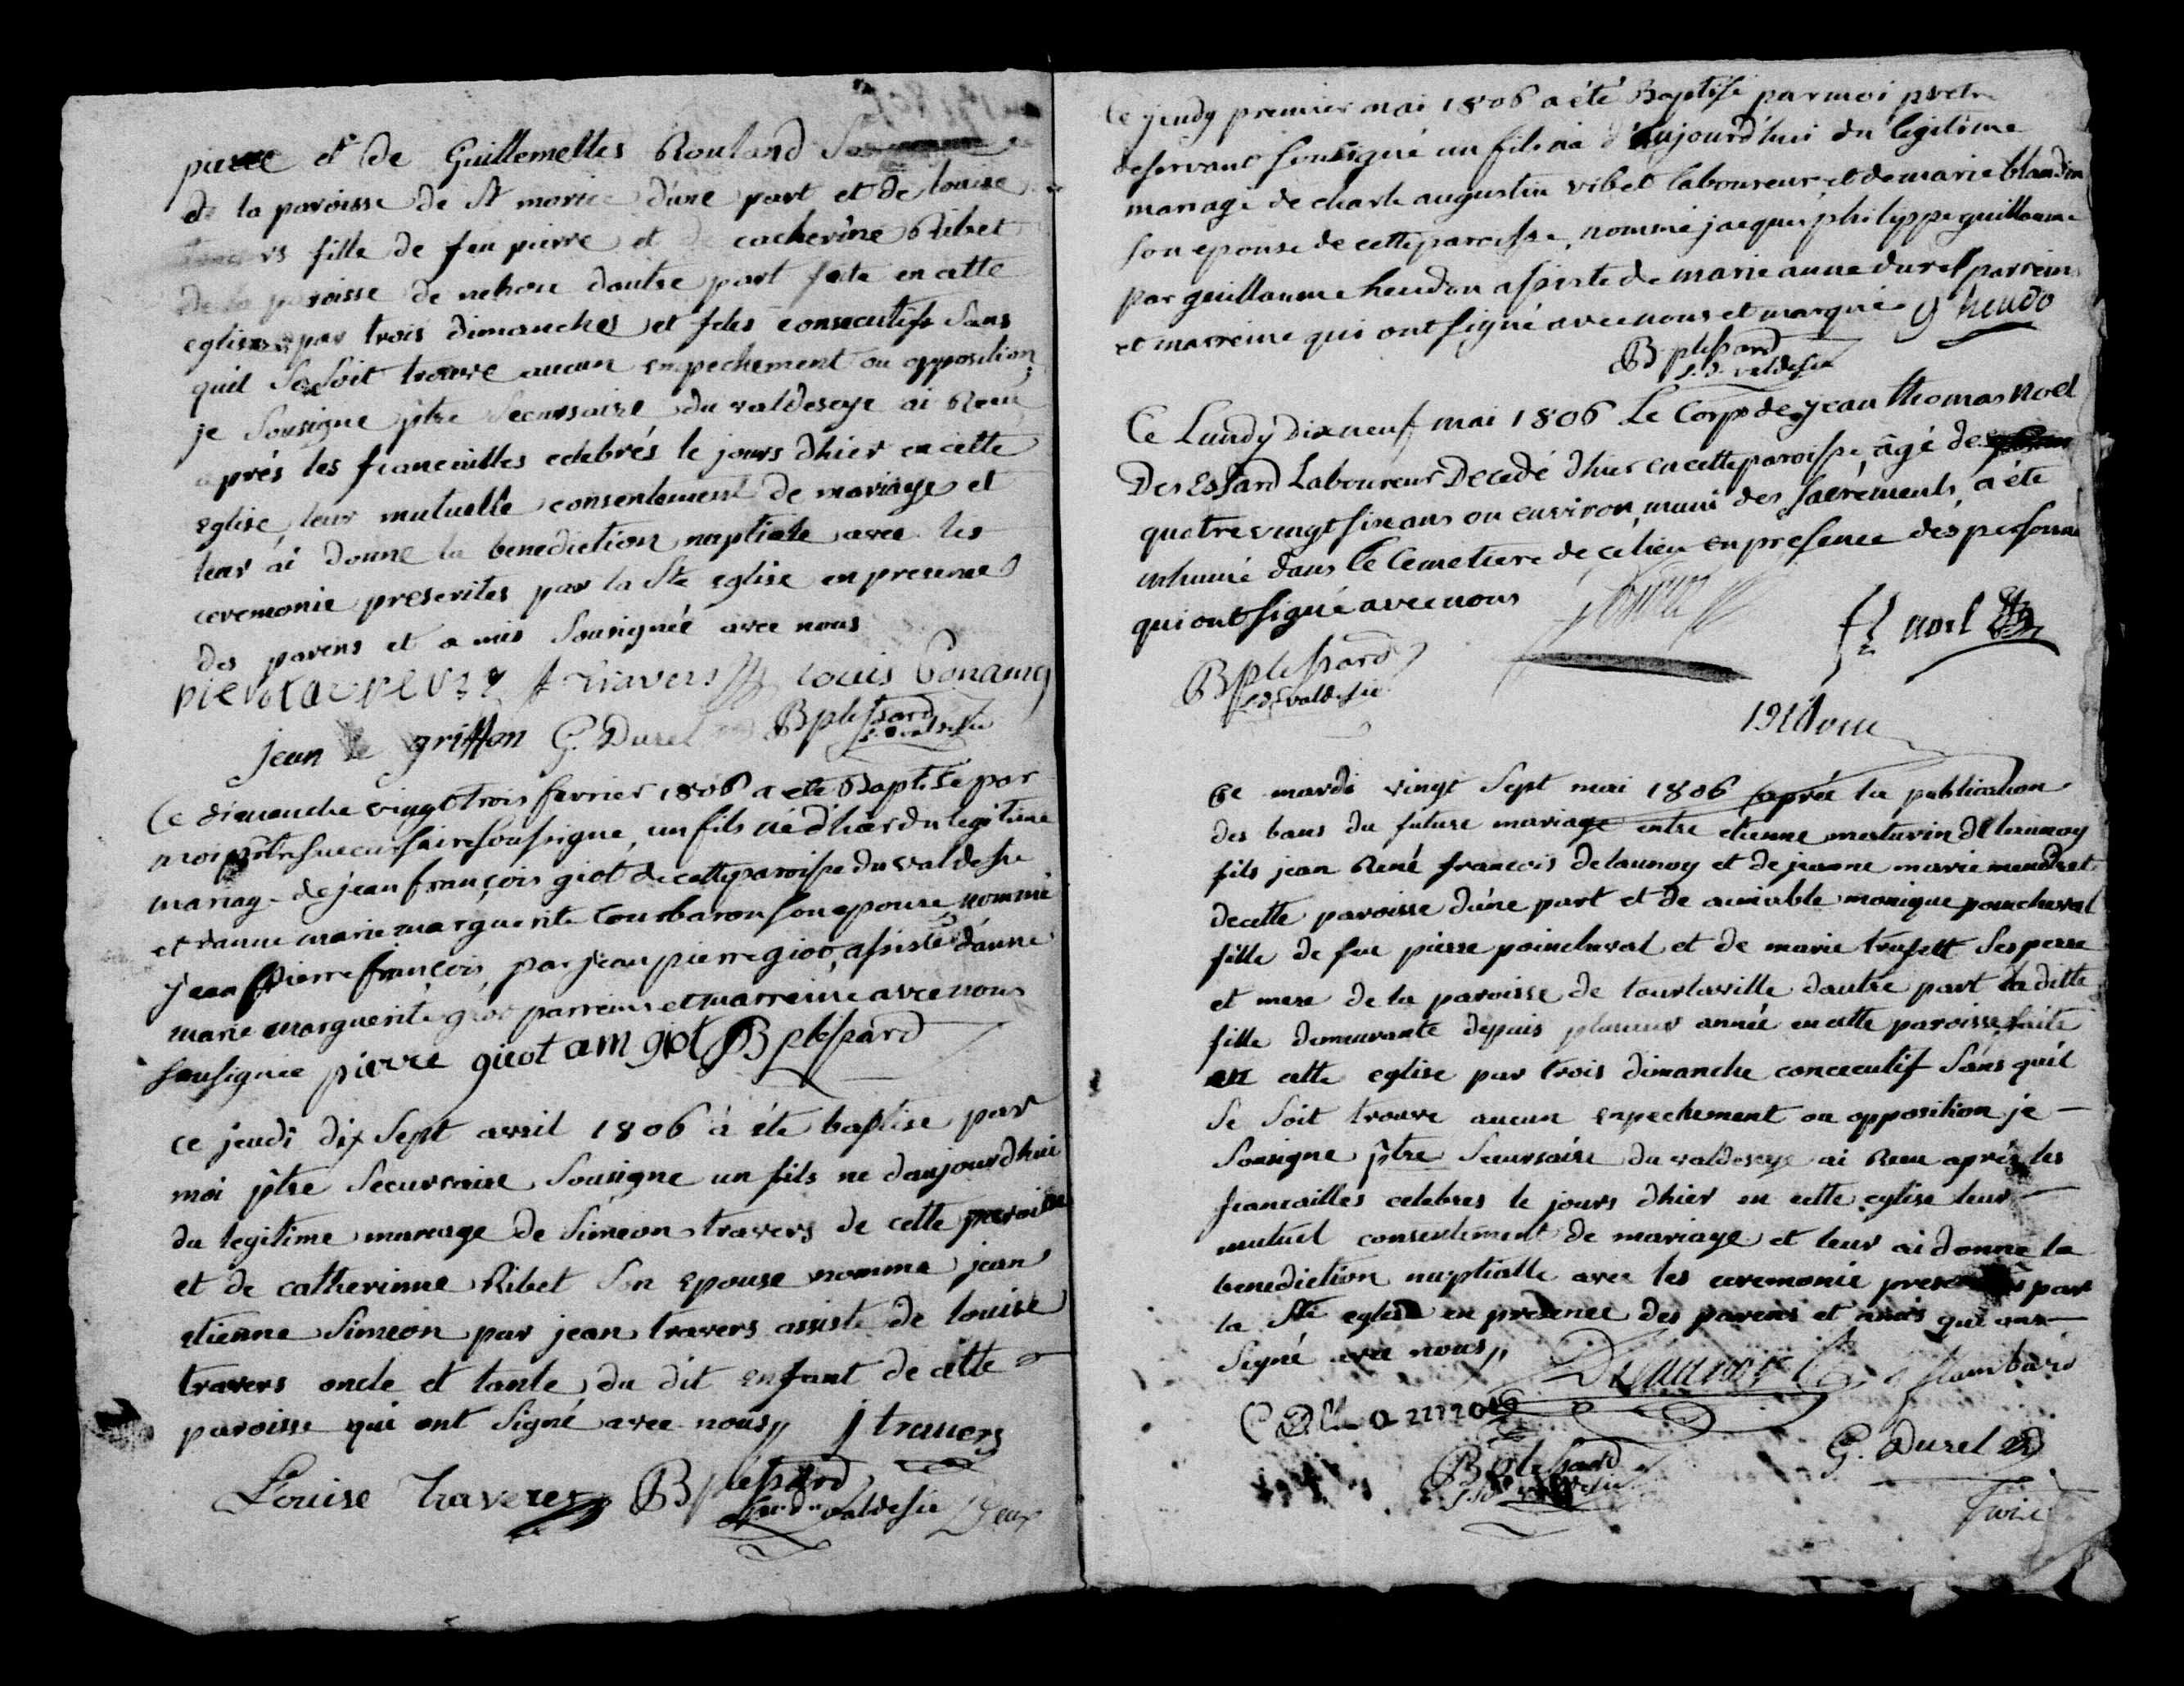 pierre et de Guillemettes Rouland
de la paroisse de St morice d'une part et de louise
travers fille de feu pierre et de catherine Ribet
de la paroisse de nehou dautre part faite en cette
eglise par trois dimanches et fetes consecutifs sans
quil se soit trouve aucun enpechement ou opposition
je sousigne ptre secursaire du valdesoye ai Recu
aprés les fiancailles celebrés le jours dhier en cette
eglise leur mutuelle consentement de mariage et
leur ai donne la benediction nuptiale avec les
ceremonie prescrites par la Ste eglise en presence
des parens et amis sousignée avec nous
travers louis
jean le griffon G. Durel B plessard
s. d. valdesie
Ce dimanche vingt trois fevrier 1806 a ete Baptise par
moi ptre succursaire soussigne, un fils né d'hier du legitime
mariag- de jean françois giot de cette paroisse du valdesie
et danne marie marguerite Courbaron son epouse, nommé
jean pierre françois, par jean pierre giot, assisté d'anne
marie marguerite giot parreins et marreine avec nous
sousignée pierre giot am giot B plessard
ce jeudi dix sept avril 1806 à éte baptise par
moi ptre secursaire sousigne un fils ne daujourdhui
du legitime mareage de simeon travers de cette paroisse
et de catherinne Ribet son epouse nomme jean
etienne simeon par jean travers assiste de louise
travers oncle et tante du dit enfant de cette
paroisse qui ont signé avec nous j travers
Louise traveres B plessard
sur. du valdesie Deux
Ce jeudy premier mai 1806 a été Baptisé par moi pretre
deservant sousigné un fils né d'aujourd'hui du légitime
mariage de charle augustin vibet laboureur et de marie blandin
son epouse de cette paroisse, nommé jacques philippe guillaume
par guillaume heudon assisté de marie anne durel parrein
et marreine qui ont signé avec nous et marqué g heudo
B plessard
s. d. valdesie
Ce Lundy dix neuf mai 1806 Le Corps de jean thomas Noel
Des Essard Laboureur Decedé d'hier en cette paroisse, âgé de
quatre vingt six ans ou environ, muni des sacréments, a été
inhumé dans le Cemetiere de ce lieu en présence des personne
qui ont signé avec nous
noel
B plessard
s. d. valdesie
Ce mardi vingt sept mai 1806 aprée la publication
des bans du future mariage entre etienne maturin delaunoy
fils jean René francois delaunoy et de jeanne marie
de cette paroisse d'une part et de aimable monique poincheval
fille de feu pierre poincheval et de marie ses pere
et mere de la paroisse de tourlaville dautre part la ditte
fille demeurante depuis plusieur année en cette paroisse, faite
en cette eglise par trois dimanche concecutif sans quil
se soit trouve aucun enpechement ou opposition je
sousigne ptre secursaire du valdesoye ai Recu aprés les
fiancailles celebres le jours dhier en cette eglise leur
mutuel consentement de mariage et leur ai donne la
benediction nuptialle avec les ceremonie par
la Ste eglise en presence des parens et amis qui ont
signé avec nous
Delaunoy flambard
B plessard
G. Durel